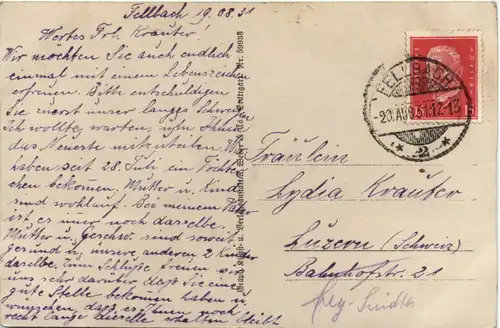 Fellbach 19.08.31
Wertes Frl. Krauter!
Wir möchten Sie auch endlich
einmal mit einem Lebenszeichen
erfreuen. Bitte entschuldigen
Sie zuerst unser langes Schweig.
Ich wollte warten, um Ihnen
das Neueste mitzuteilen. Wir
haben seit 28. Juli ein Töchter-
chen bekommen. Mutter u. Kind
sind wohlauf. Bei meinem Vater
ist es immer noch dasselbe.
Mutter u. Geschw. sind soweit
gesund u. unsere anderen 2 Kinder
dasselbe. Zum Schluße freuen wir
uns sehr darüber, daß Sie eine
gute Stelle bekommen haben u.
wünschen, daß es Ihnen noch
recht lange dieselbe erhalten bleibt
FELLBACH
-20.AUG.31.12-13
* 2 *
15
Fräulein
Lydia Krauter
Luzern (Schweiz)
Bahnhofstr. 21